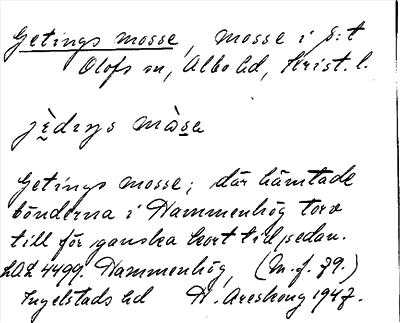 Getings mosse, mosse i S:t
Olofs sn, Albo hd, Krist. l.
jèdiŋs màsa
Getings mosse; där hämtade
bönderna i Hammenhög torv
till för ganska kort tid sedan.
LAL 4499. Hammenhög, (M.f. 79.)
Ingelstads hd H. Areskoug 1947.